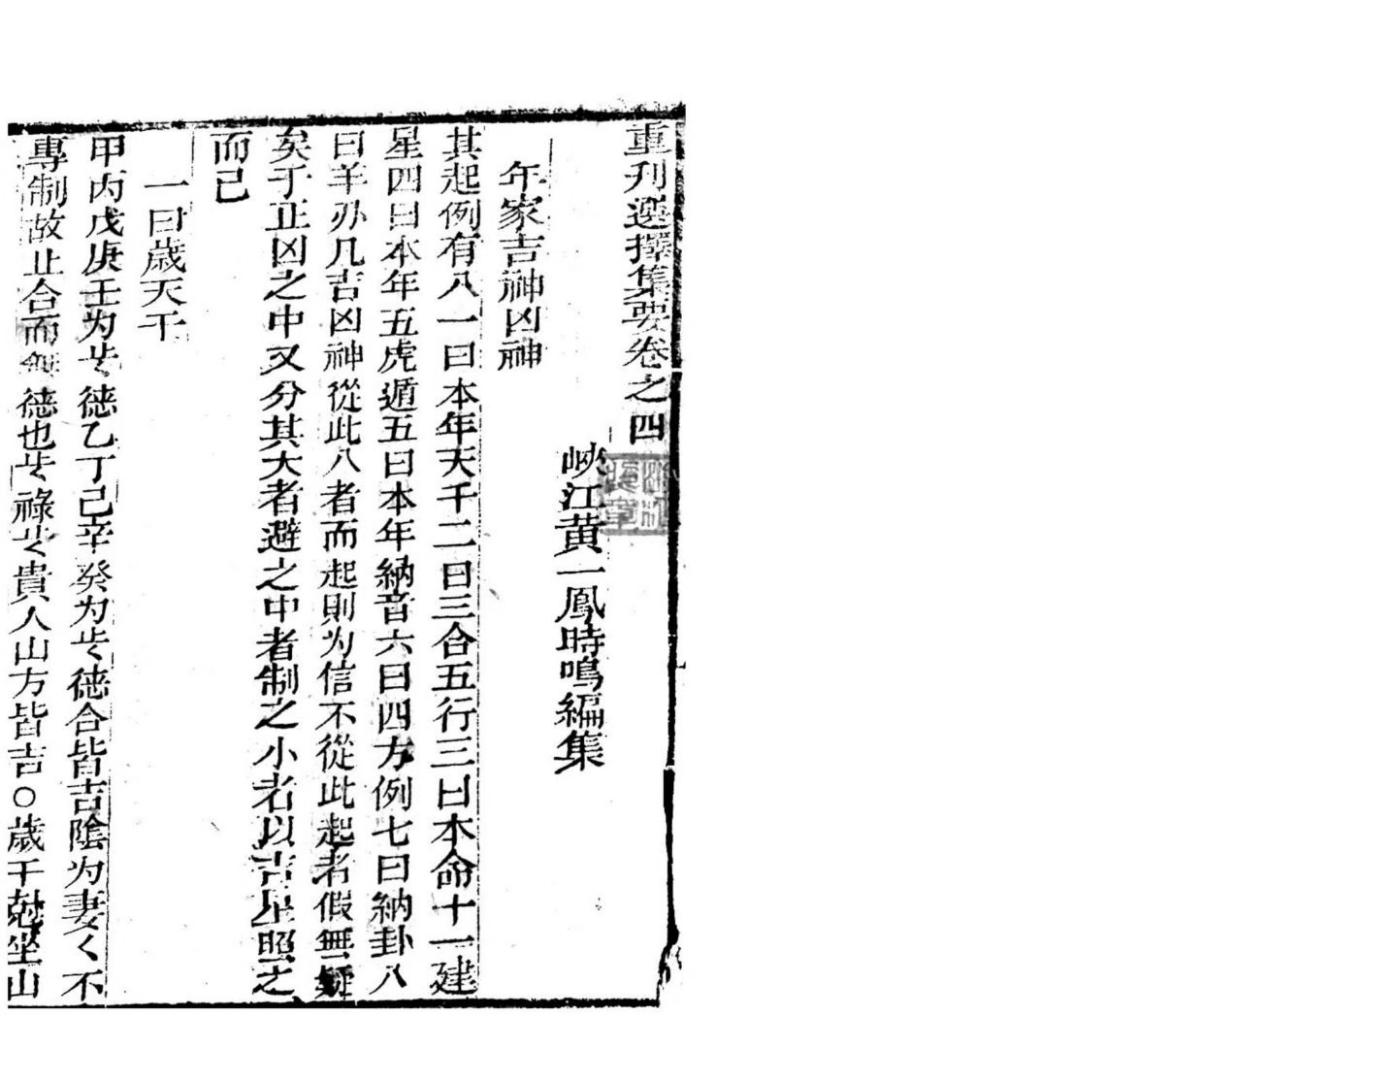 重刋選擇集要卷之四
峽江黄一鳳時鳴編集
年家吉神凶神
其起例有八一曰本年天干二曰三合五行三曰本命十一建
星四曰本年五虎遁五曰本年納音六曰四方例七曰納卦八
曰羊刃凡吉凶神從此八者而起則为信不從此起者假無疑
矣于正凶之中又分其大者避之中者制之小者以吉星照之
而已
一曰歲天干
甲丙戊庚壬为歲德乙丁己辛癸为歲德合皆吉陰为妻〻不
專制故止合而無德也歲祿歲貴人山方皆吉○歲干尅坐山